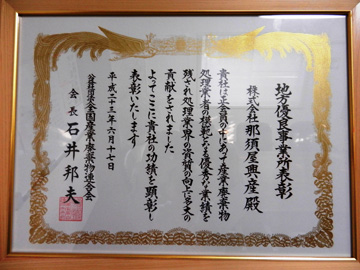 地方優良事業所表彰
株式会社那須屋興産殿
貴社は芝会員の中にあって産業廃棄物
処理業者の模範となる優秀な業績を
残され処理業界の資質の向上に多大の
貢献をされました
よってここに貴社の功績を顕彰し
表彰いたします
平成二十三年六月十七日
公益社団法人全国産業廃棄物連合会
会長 石井邦夫